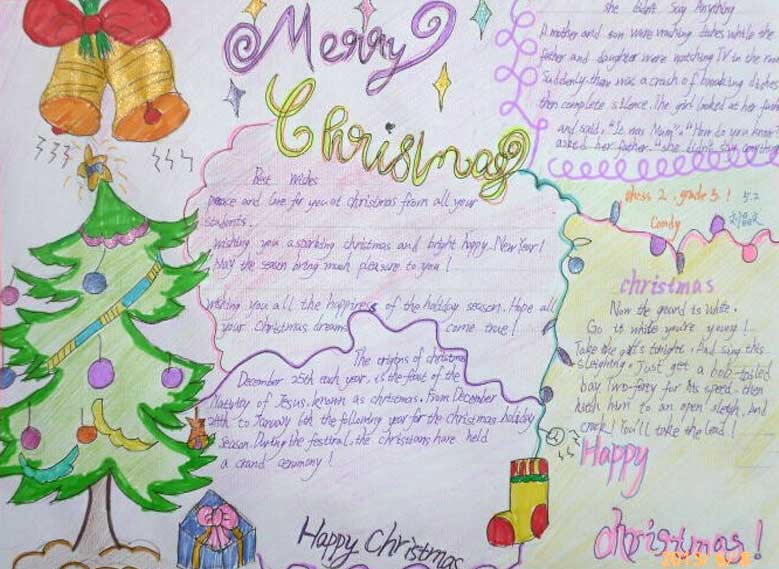 Merry
Christmas
she didn't say Anything
A mother and son were washing dishes while the
father and daughter were watching TV in the room
Suddenly there was a crash of breaking dishes
then complete silence. The girl looked at her
and said. "It was Mum". "How do you know
asked her father. "she didn't say anything
class 2, grade 5! 5.2
Candy
Best wishes
peace and love for you at christmas from all your
students.
wishing you a sparking christmas and bright happy. New Year!
May the season bring much pleasure to you!
wishing you all the happiness of the holiday season. Hope all
your Christmas dreams come true!
The origins of christmas
December 25th each year, is the feast of the
Nativity of Jesus, known as christmas. From December
24th to January 6th the following year for the christmas holiday
season. During the festival, the christians have held
a grand ceremony!
christmas
Now the ground is white.
Go it while you're young!
Take the tonight. And sing this
sleighing. Just get a bob-tailed
bay Two-forty for his speed. then
hitch him to an open sleigh, And
crack! You'll take the lead!
Happy
christmas!
Happy Christmas